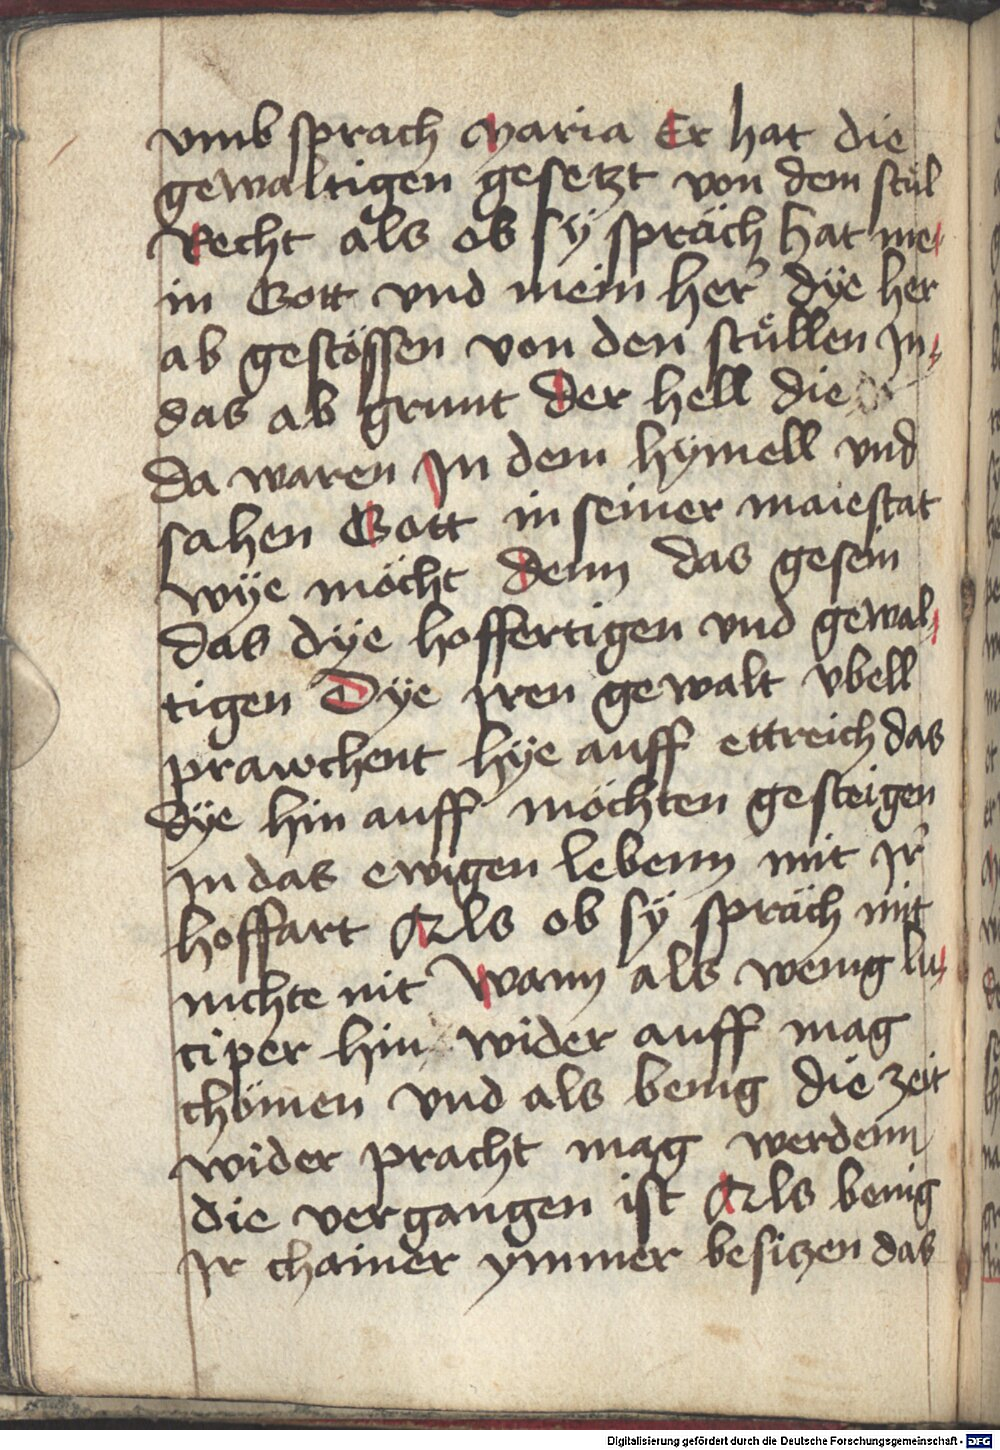 vmb sprach Maria Er hat die
gewaltigen gesetzt von dem stůl
Recht als ob sÿ spräch hat me-
in Gott vnd mein her dÿe her
ab gestössen von den stůllen In-
das ab grunt der hell die
da waren In dem hymell vnd
sahen Gott in seiner maiestat
wÿe möcht denn das gesein
das dÿe hoffertigen vnd gewal-
tigen Dÿe iren gewalt vbell
prawchent hÿe auff ettreich das
dÿe hin auff möchten gesteigen
In das ewigen lebenn mit Ir
hoffart Als ob sÿ spräch mit
nichte nit Wann als wenig lu-
ciper hin wider auff mag
chömen vnd als benig die zeit
wider pracht mag werdenn
die vergangen ist Als benig
Ir chainer ymmer besitzen das
Digitalisierung gefördert durch die Deutsche Forschungsgemeinschaft - DFG